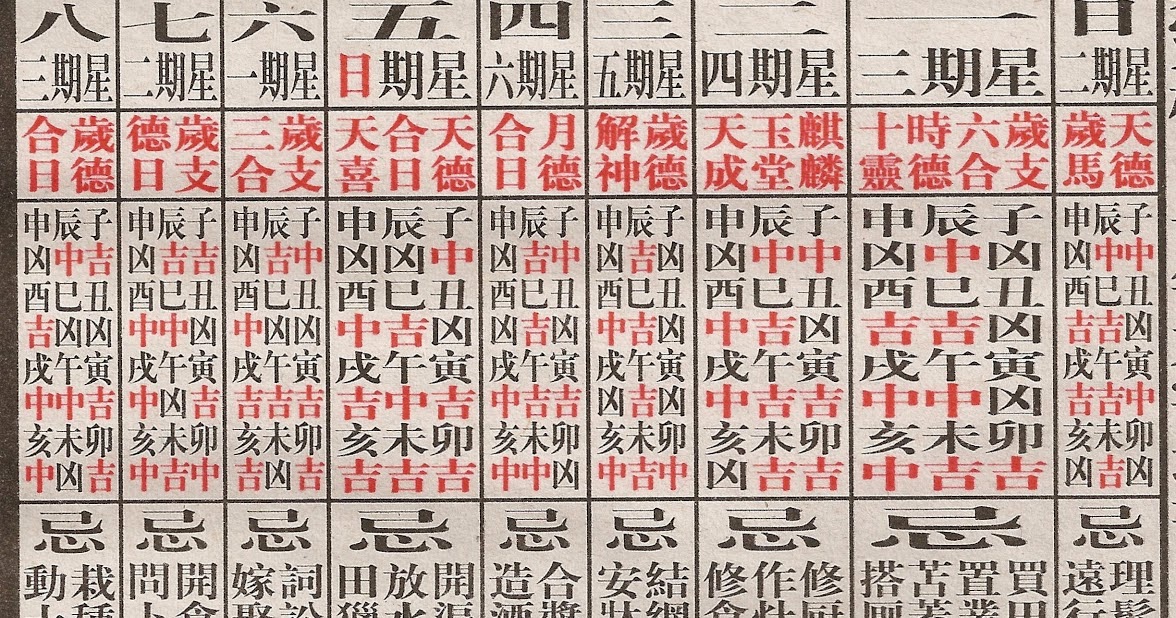 日
星期二
天德
歲馬
子辰申
中中凶
丑巳酉
凶吉吉
寅午戌
中吉吉
卯未亥
凶吉凶
忌
理髮
遠行
一
星期三
歲支
六合
時德
十靈
子辰申
凶中凶
丑巳酉
凶吉吉
寅午戌
凶中中
卯未亥
吉吉中
忌
買田
置業
苫蓋
搭廁
二
星期四
麒麟
玉堂
天成
子辰申
中中凶
丑巳酉
凶吉中
寅午戌
吉吉中
卯未亥
吉吉凶
忌
修廚
作灶
修倉
三
星期五
歲德
解神
子辰申
凶吉凶
丑巳酉
中吉凶
寅午戌
凶吉凶
卯未亥
中吉中
忌
結網
安牀
四
星期六
月德
合日
子辰申
中吉凶
丑巳酉
凶吉凶
寅午戌
吉吉中
卯未亥
凶中中
忌
合醬
造酒
五
星期日
天德
合日
天喜
子辰申
中凶凶
丑巳酉
凶吉中
寅午戌
吉中吉
卯未亥
吉吉吉
忌
開渠
放水
田獵
六
星期一
歲支
三合
子辰申
中吉凶
丑巳酉
凶凶中
寅午戌
吉吉吉
卯未亥
吉凶吉
忌
詞訟
嫁娶
七
星期二
歲支
德日
子辰申
吉吉凶
丑巳酉
凶中中
寅午戌
吉凶中
卯未亥
中吉中
忌
開倉
問卜
八
星期三
歲德
合日
子辰申
吉中凶
丑巳酉
凶凶吉
寅午戌
吉中中
卯未亥
吉凶中
忌
栽種
動土